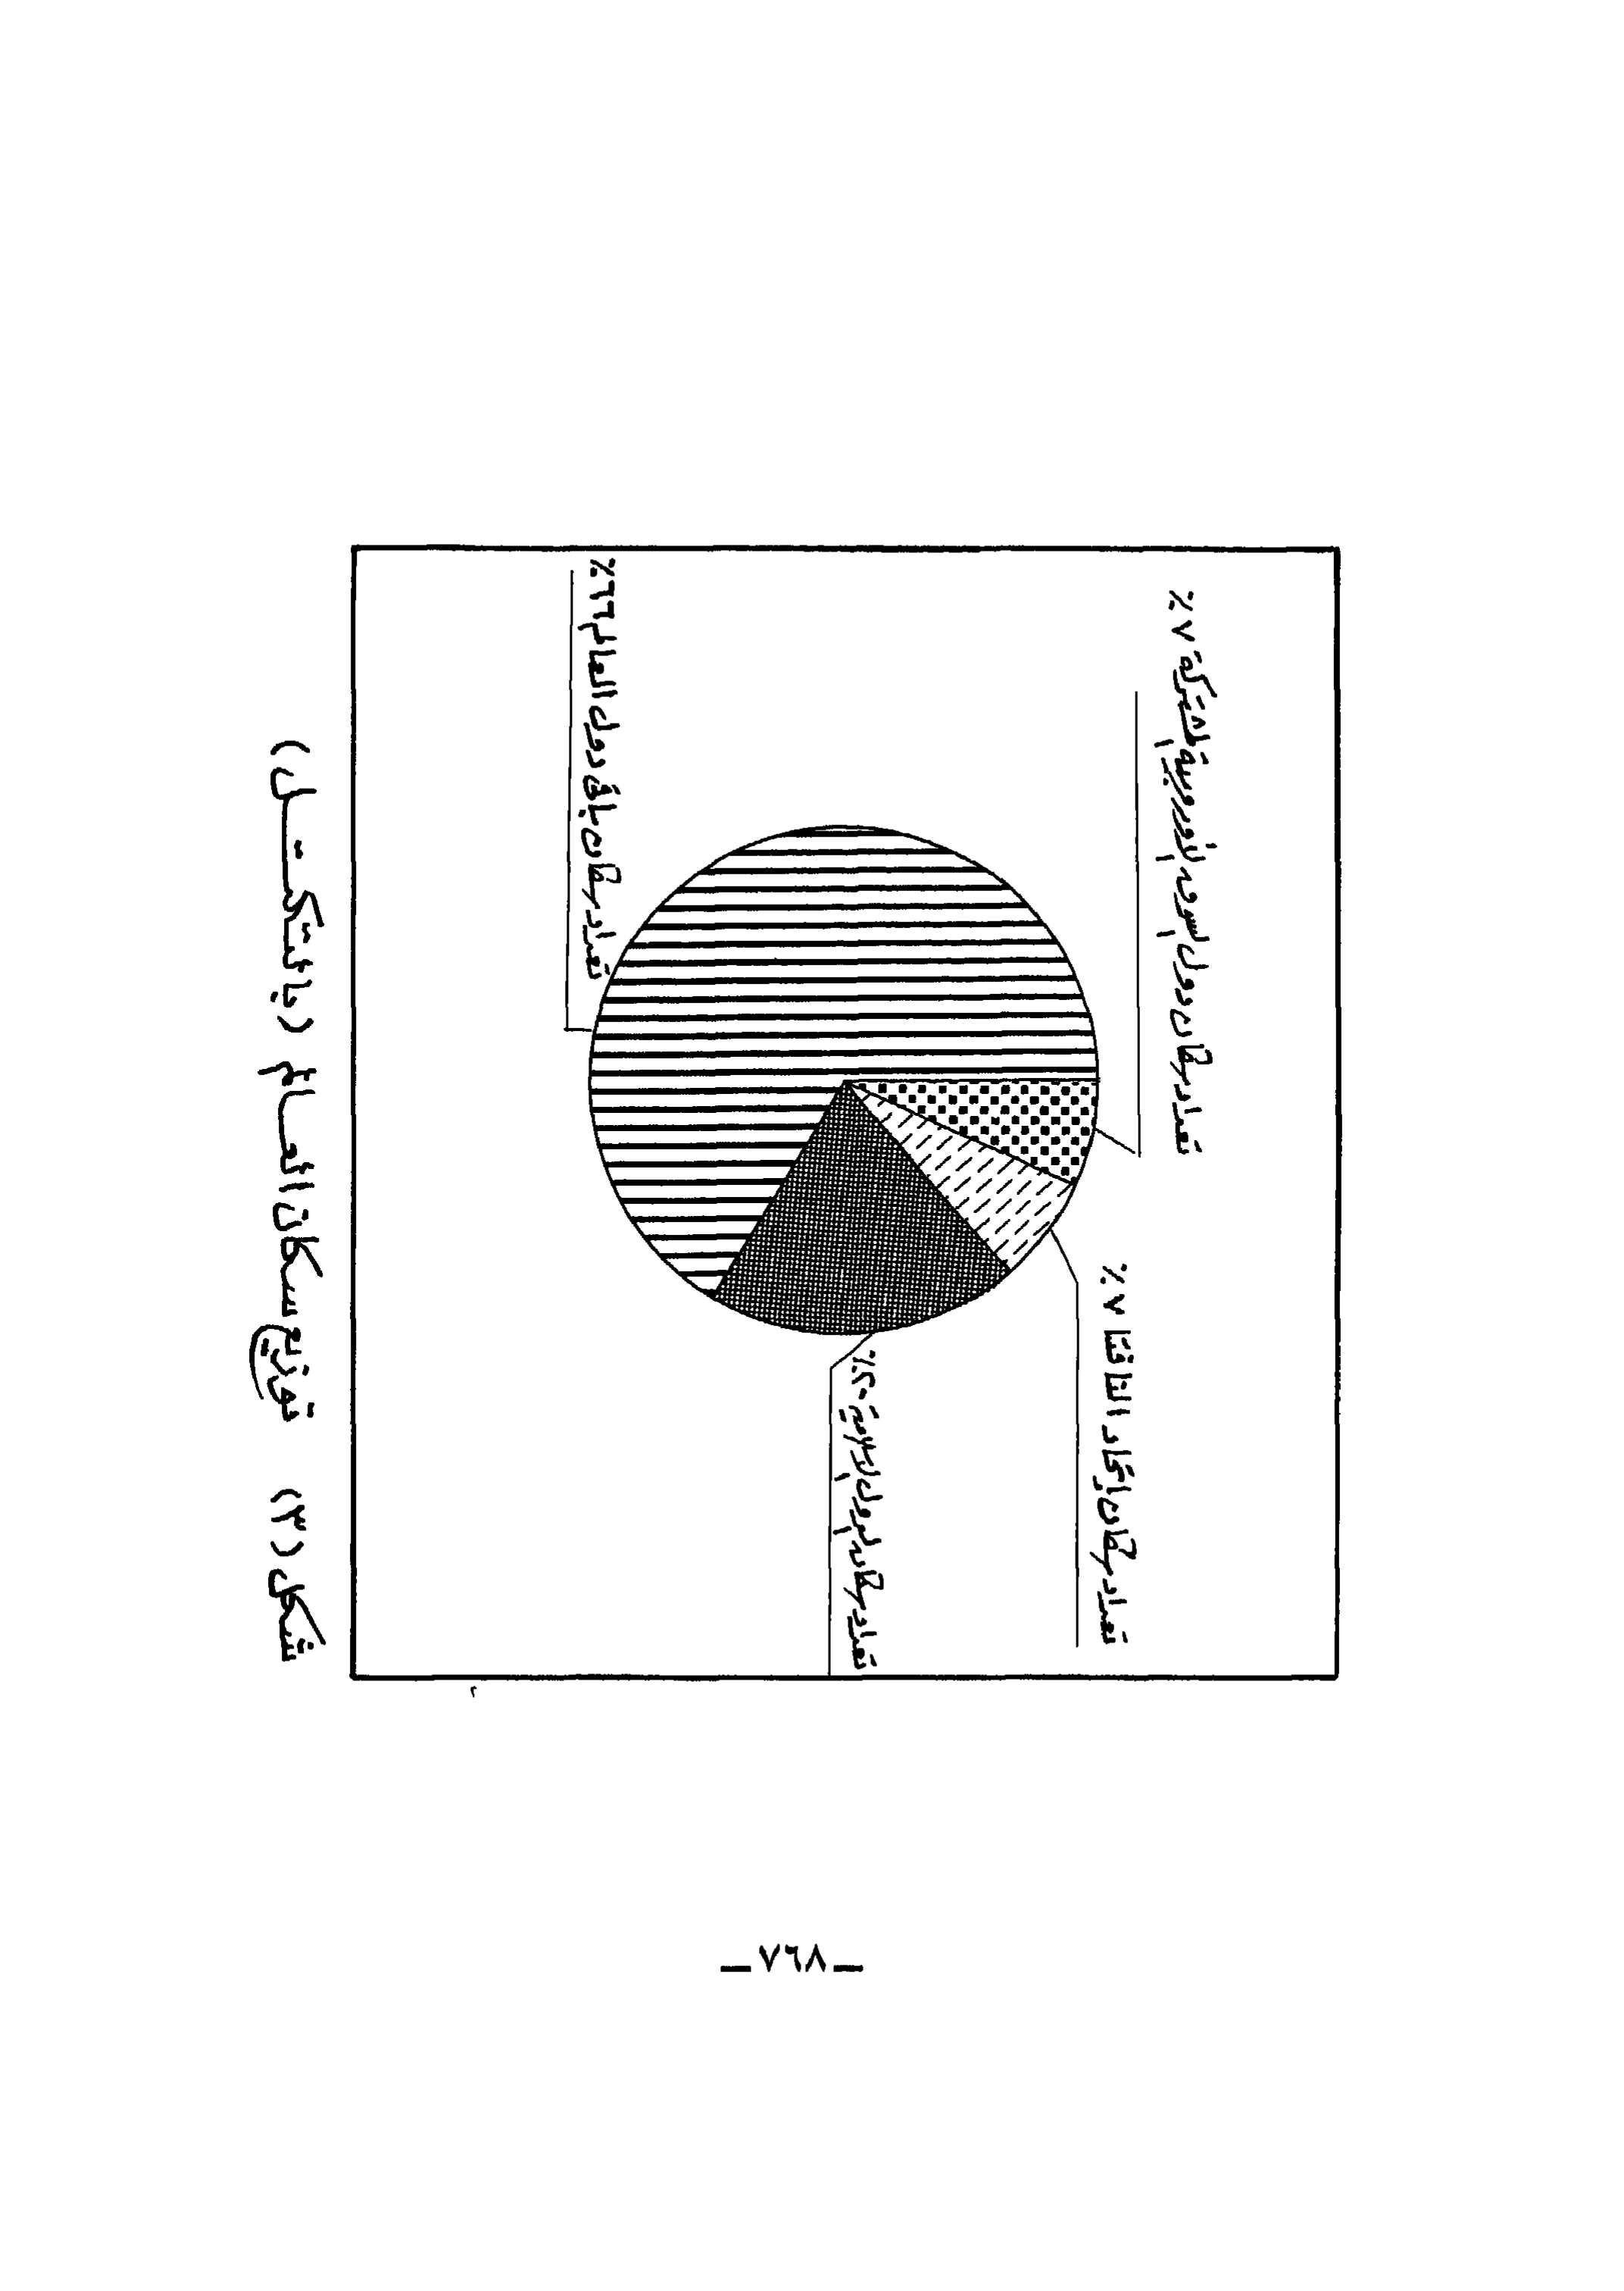 تعداد سكان دول السوق الأوروبية المشتركة ٧٪
تعداد سكان اتحاد النافتا ٧٪
تعداد سكان الدول الإسلامية ٢٠٪
تعداد سكان باقى دول العالم ٦٦٪
شكل (٣) توزيع سكان العالم (بالتكتل)
ـ ٧٦٨ ـ